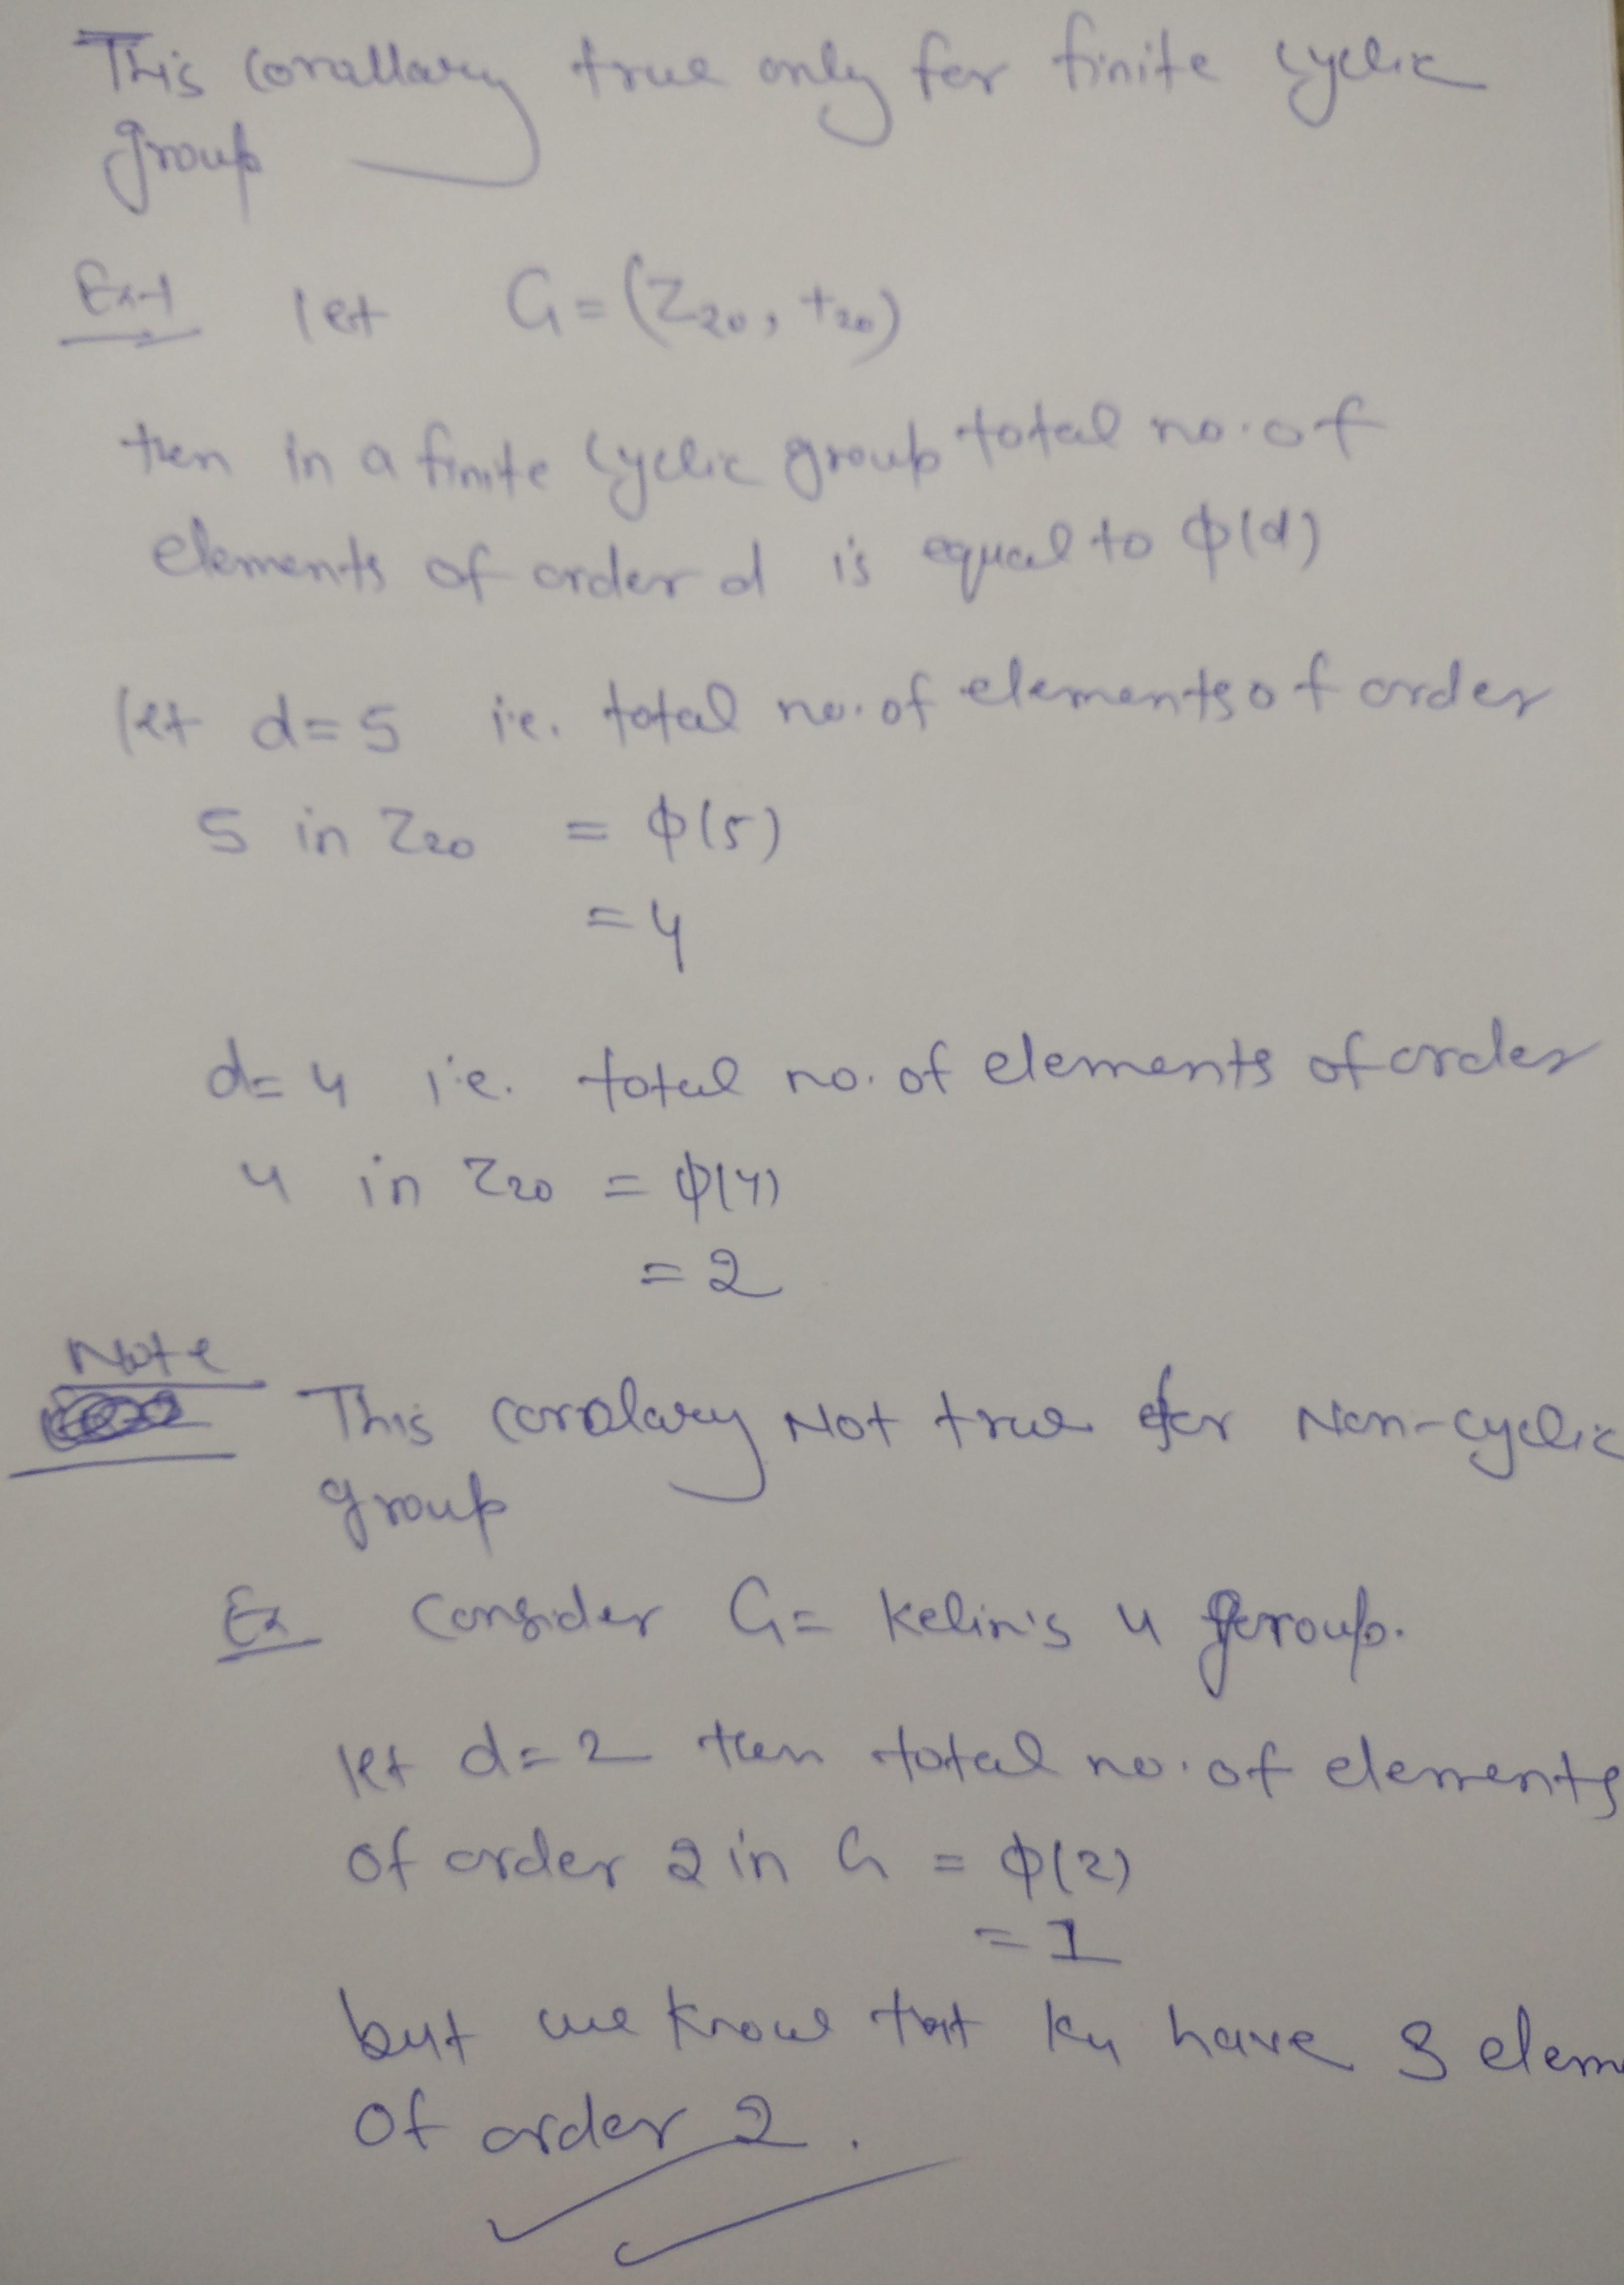 This corallary true only for finite cyclic
group
Ex-1 let G = (Z20, +20)
then in a finite cyclic group total no. of
elements of order d is equal to ϕ(d)
let d=5 i.e. total no. of elements of order
5 in Z20 = ϕ(5)
= 4
d=4 i.e. total no. of elements of order
4 in Z20 = ϕ(4)
= 2
Note
This corolary Not true for Non-cyclic
group
Ex Consider G = Kelin's 4 group.
let d=2 then total no. of elements
of order 2 in G = ϕ(2)
= 1
but we know that K4 have 3 elem
of order 2.